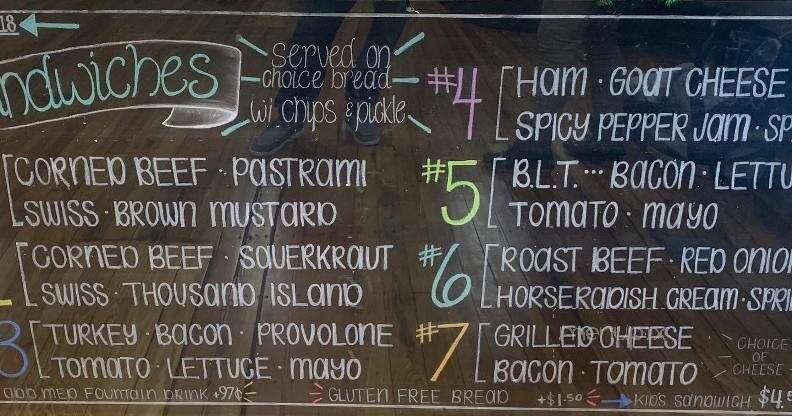 18
ndwiches
Served on
choice bread
w/ chips & pickle
CORNED BEEF · PASTRAMI
SWISS · BROWN MUSTARD
CORNED BEEF · SAUERKRAUT
SWISS · THOUSAND ISLAND
3 TURKEY · BACON · PROVOLONE
TOMATO · LETTUCE · MAYO
#4 HAM · GOAT CHEESE
SPICY PEPPER JAM · SP
#5 B.L.T. ... BACON · LETTU
TOMATO · MAYO
#6 ROAST BEEF · RED ONION
HORSERADISH CREAM · SPRI
#7 GRILLED CHEESE
BACON · TOMATO
CHOICE
OF
CHEESE
ADD MED FOUNTAIN DRINK +97¢
GLUTEN FREE BREAD +$1.50
KID'S SANDWICH $4.5